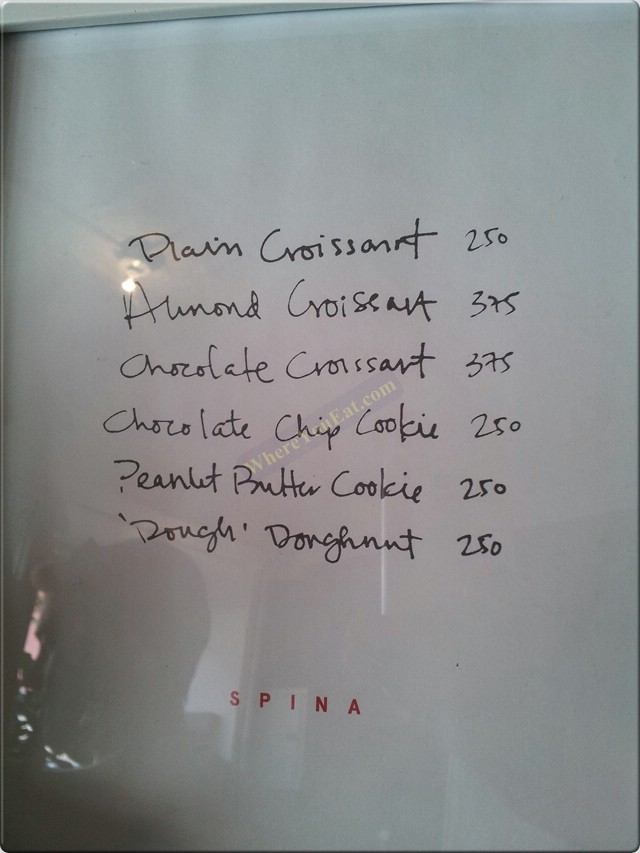 Plain Croissant 250
Almond Croissant 375
Chocolate Croissant 375
Chocolate Chip Cookie 250
WhereYouEat.com
Peanut Butter Cookie 250
'Dough' Doughnut 250
SPINA